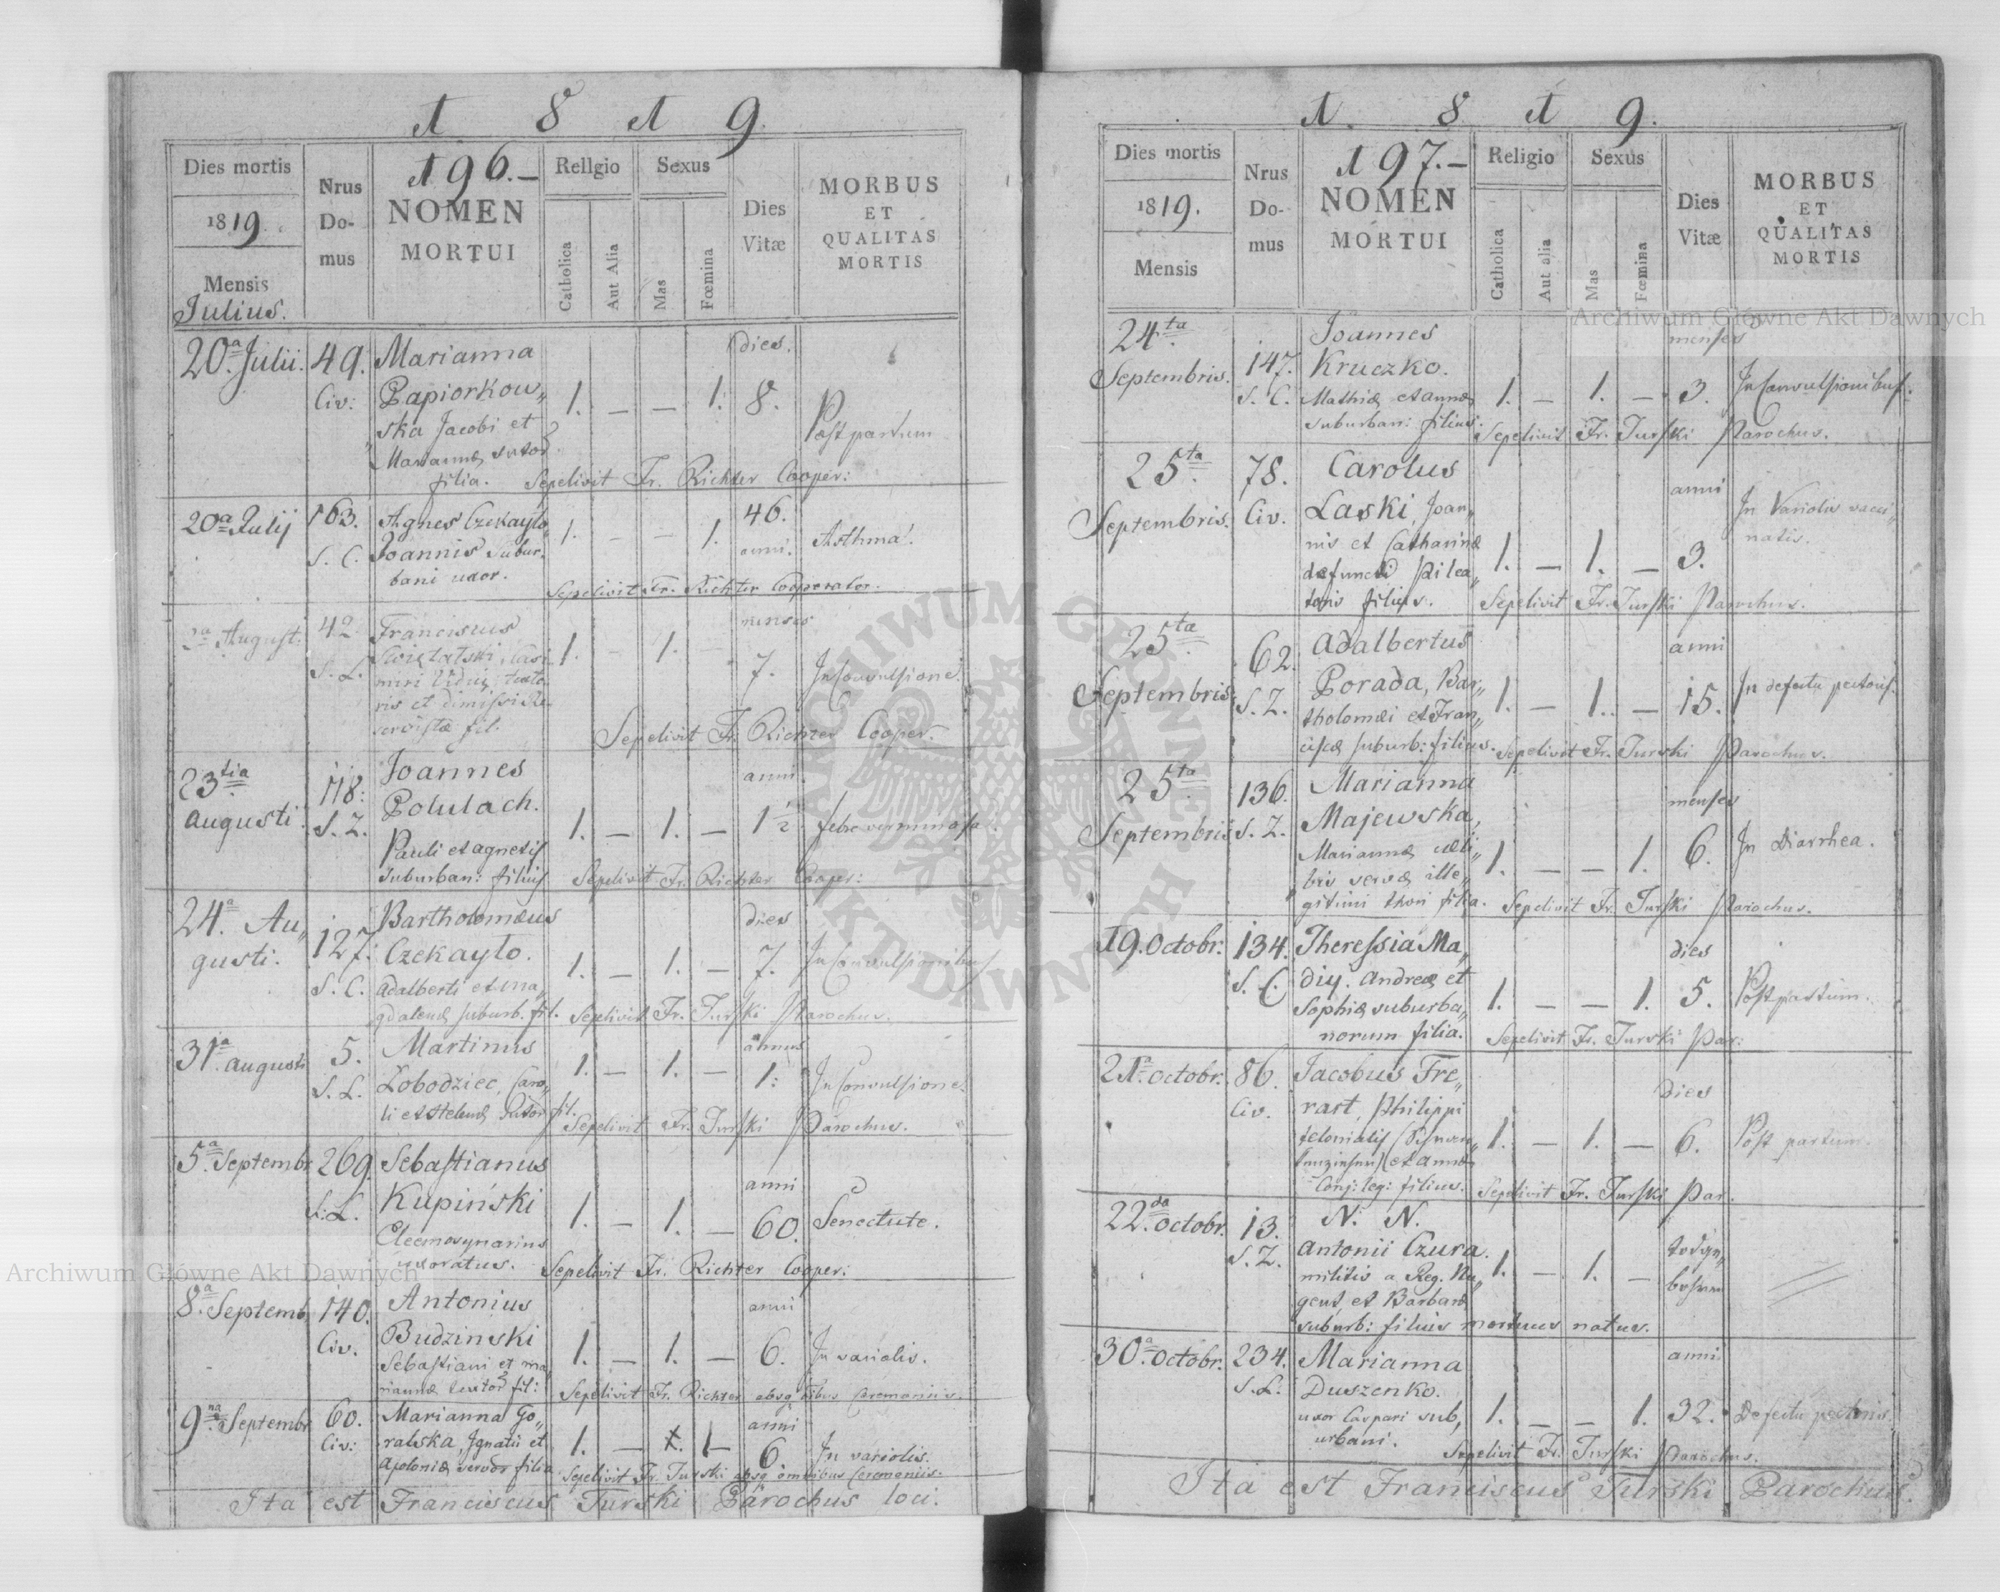 1 8 1 9.
Dies mortis
1819.
Mensis
Julius.
Nrus
Do-
mus
196.—
NOMEN
MORTUI
Religio
Catholica
Aut Alia
Sexus
Mas
Fœmina
Dies
Vitæ
MORBUS
ET
QUALITAS
MORTIS
20.a Julii. 49. Marianna dies.
Civ: Papiorkow„ 1. — — 1. 8.
ska Jacobi et Post partum
Mariannæ sutor.
filia. Sepelivit Fr. Richter Cooper:
20a Julij 163. Agnes Czekayło 46.
S. C. Joannis subur. 1. — — 1. anni. Asthma.
bani uxor.
Sepelivit Fr. Richter Cooperator.
August. 42 Franciscus menses
S. L. 1. — 1. — 7. In Convulsione.
ris et dimissi Re
servistæ fil. Sepelivit Fr. Richter Cooper.
23.tia 118. Joannes anni.
Augusti. S. Z. Polulach. 1. — 1. — 1½ febre verminosa.
Pauli et Agnetis
suburban: filius Sepelivit Fr. Richter Cooper:
24.a Au„ 127. Bartholomæus dies
gusti. S. C. Czekayło. 1. — 1. — 7. In Convulsionibus
Adalberti et Ma„
gdalenæ suburb. fil. Sepelivit Fr. Turski Parochus.
31.a Augusti 5. Martinus annus
S. L. Łobodziec, Caro„ 1. — 1. — 1. In Convulsione.
li et Helenæ sutor fil. Sepelivit Fr. Turski Parochus.
5.a Septembr 269. Sebastianus anni
S. L. Kupiński 1. — 1. — 60. Senectute.
Eleemosynarius
uxoratus. Sepelivit Fr. Richter Cooper:
8.a Septemb. 140. Antonius anni
Civ. Budzinski 1. — 1. — 6. In variolis.
Sebastiani et Ma„
riannæ textor fil: Sepelivit Fr. Richter absq omnibus Ceremoniis.
9.na Septembr 60. Marianna Go„ anni
Civ: ralska, Ignatii et 1. — 1. 1 6. In variolis.
Apoloniæ servor filia Sepelivit Fr. Turski absq omnibus Ceremoniis.
Ita est Franciscus Turski Parochus loci.
1 8 1 9.
Dies mortis
1819.
Mensis
Nrus
Do-
mus
197.—
NOMEN
MORTUI
Religio
Catholica
Aut alia
Sexus
Mas
Fœmina
Dies
Vitæ
MORBUS
ET
QUALITAS
MORTIS
24.ta Joannes menses
Septembris. 147. Kruczko.
S. C. Mathiæ et Annæ 1. — 1. — 3. In Convulsionibus.
suburban: filius. Sepelivit Fr. Turski Parochus.
25.ta 78. Carolus anni
Septembris. Civ. Laski, Joan„ In Variolis vacci„
nis et Catharinæ 1. — 1. — 3. natis.
defunctæ pilea„
toris filius. Sepelivit Fr. Turski Parochus.
25.ta 62. Adalbertus anni
Septembris. S. Z. Porada, Bar„ 1. — 1. — 15. In defectu pectoris.
tholomæi et Fran„
ciscæ suburb: filius. Sepelivit Fr. Turski Parochus.
25.ta 136. Marianna menses
Septembris S. Z. Majewska, 1. — — 1. 6. In Diarrhea.
Mariannæ cæli„
bis servæ ille„
gitimi thori filia. Sepelivit Fr. Turski Parochus.
19. Octobr. 134. Theressia Ma„ dies
S. C. diy. Andreæ et 1. — — 1. 5. Post partum.
Sophiæ suburba„
norum filia. Sepelivit Fr. Turski Par:
21.a Octobr. 86. Jacobus Fre„ dies
Civ. rart, Philippi 1. — 1. — 6. Post partum.
et Annæ
Conj: leg: filius. Sepelivit Fr. Turski Par.
22.da Octobr. 13. N. N.
S. Z. Antonii Czura. 1. — 1. —
militis a Reg. Nu„
gent et Barbaræ
suburb: filius mortuus natus.
30.a Octobr. 234. Marianna anni
S. L. Duszenko. 1. — — 1. 32. Defectu pectoris.
uxor Caspari sub„
urbani. Sepelivit Fr. Turski Parochus.
Ita est Franciscus Turski Parochus.
Archiwum Główne Akt Dawnych
Archiwum Główne Akt Dawnych
ARCHIWUM GŁÓWNE AKT DAWNYCH